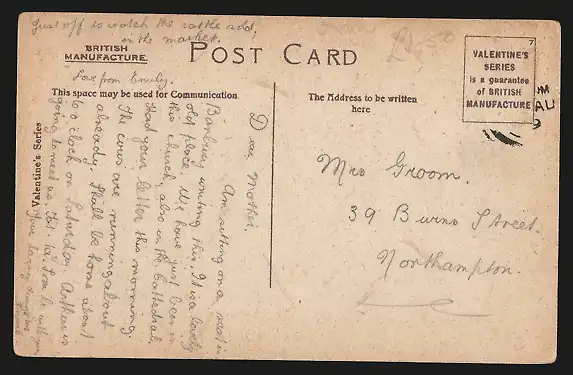 Just off to watch the cattle sold,
in the market.
BRITISH
MANUFACTURE.
POST CARD
£1.50
7
VALENTINE'S
SERIES
is a guarantee
of BRITISH
MANUFACTURE
Love from Emily.
This space may be used for Communication.
The Address to be written
here
Valentine's Series
Dear Mother.
Am sitting on a seat in
Banbury writing this. It is a lovely
old place. We have just been in
this church, also in the Cathedral.
Had your letter this morning.
The cows are running about
already. Shall be home about
6 o'clock on Saturday Arthur is
going to meet us.
Your loving daughter
Mrs Groom.
39 Burns Street.
Northampton.